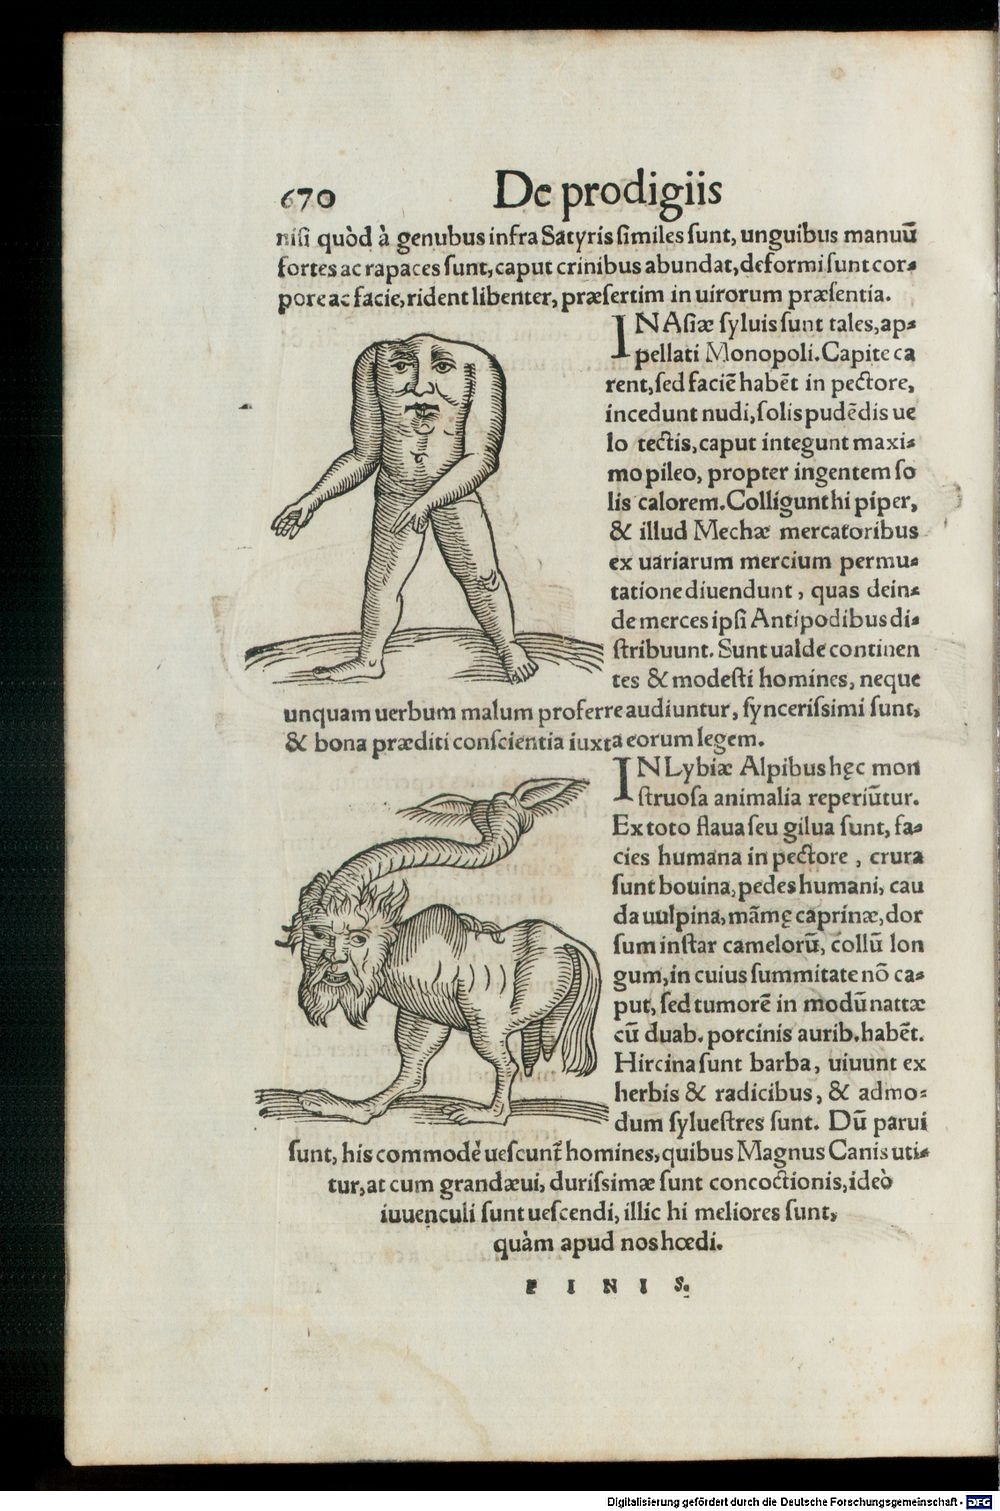 670
De prodigiis
nisi quòd à genubus infra Satyris similes sunt, unguibus manuū
fortes ac rapaces sunt, caput crinibus abundat, deformi sunt cor⸗
pore ac facie, rident libenter, præsertim in uirorum præsentia.
IN Asiæ syluis sunt tales, ap⸗
pellati Monopoli. Capite ca
rent, sed faciē habēt in pectore,
incedunt nudi, solis pudēdis ue
lo tectis, caput integunt maxi⸗
mo pileo, propter ingentem so
lis calorem. Colligunt hi piper,
& illud Mechæ mercatoribus
ex uariarum mercium permu⸗
tatione diuendunt, quas dein⸗
de merces ipsi Antipodibus di⸗
stribuunt. Sunt ualde continen
tes & modesti homines, neque
unquam uerbum malum proferre audiuntur, syncerissimi sunt,
& bona præditi conscientia iuxta eorum legem.
IN Lybiæ Alpibus hęc mon
struosa animalia reperiūtur.
Ex toto flaua seu gilua sunt, fa⸗
cies humana in pectore, crura
sunt bouina, pedes humani, cau
da uulpina, māmę caprinæ, dor
sum instar camelorū, collū lon
gum, in cuius summitate nō ca⸗
put, sed tumorē in modū nattæ
cū duab. porcinis aurib. habēt.
Hircina sunt barba, uiuunt ex
herbis & radicibus, & admo⸗
dum syluestres sunt. Dū parui
sunt, his commodè uescunt̄ homines, quibus Magnus Canis uti⸗
tur, at cum grandæui, durissimæ sunt concoctionis, ideò
iuuenculi sunt uescendi, illic hi meliores sunt,
quàm apud nos hœdi.
FINIS.
Digitalisierung gefördert durch die Deutsche Forschungsgemeinschaft - DFG